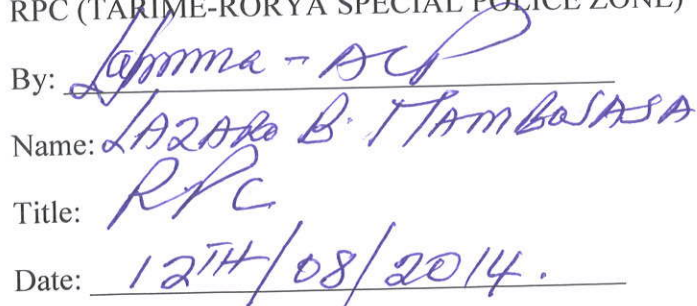 RPC (TARIME-RORYA SPECIAL POLICE ZONE)
By: - ACP
Name: LAZARO B. MAMBOSASA
Title: RPC
Date: 12TH/08/2014.